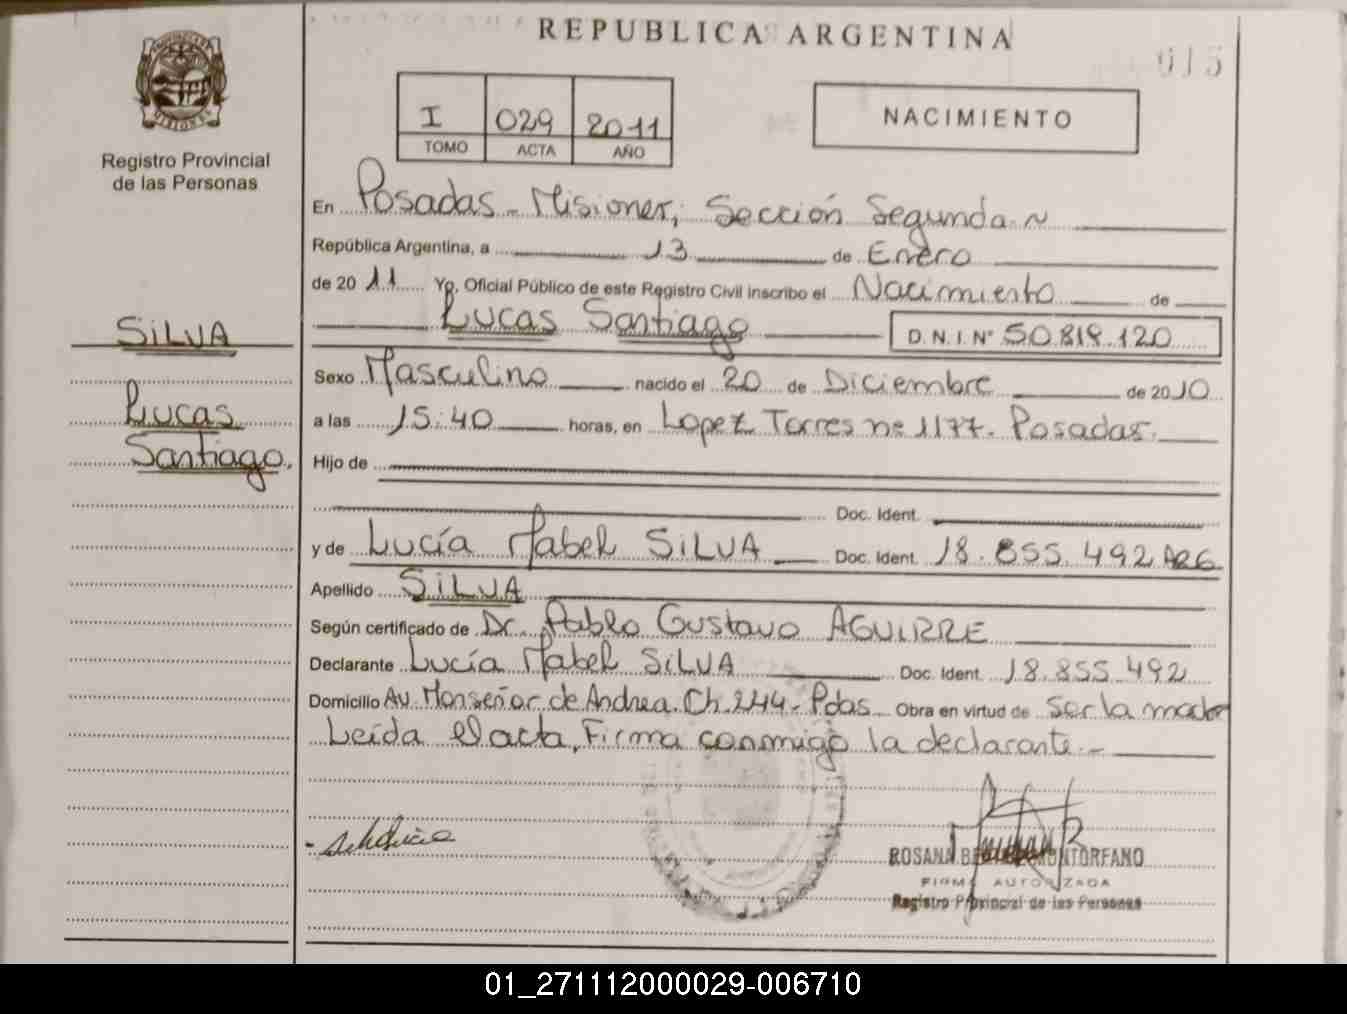 REPUBLICA ARGENTINA
015
PROVINCIA DE MISIONES
Registro Provincial
de las Personas
I 029 2011
TOMO ACTA AÑO
NACIMIENTO
En Posadas - Misiones, Sección Segunda ~
República Argentina, a 13 de Enero
de 2011 Yo, Oficial Público de este Registro Civil inscribo el Nacimiento de
Lucas Santiago D.N.I. Nº 50.819.120
Sexo Masculino nacido el 20 de Diciembre de 2010
a las 15:40 horas, en Lopez Torres nº 1177. Posadas.
Hijo de
Doc. Ident.
y de Lucía Mabel SILVA Doc. Ident. 18.855.492 ARG
Apellido SILVA
Según certificado de Dr. Pablo Gustavo AGUIRRE
Declarante Lucía Mabel SILVA Doc. Ident. 18.855.492
Domicilio Av. Monseñor de Andrea. Ch. 244 - Pdas Obra en virtud de Ser la madre
Leída el acta, Firma conmigo la declarante.-
SILVA
Lucas
Santiago.
ROSANA MONTORFANO
FIRMA AUTORIZADA
Registro Provincial de las Personas
01_271112000029-006710